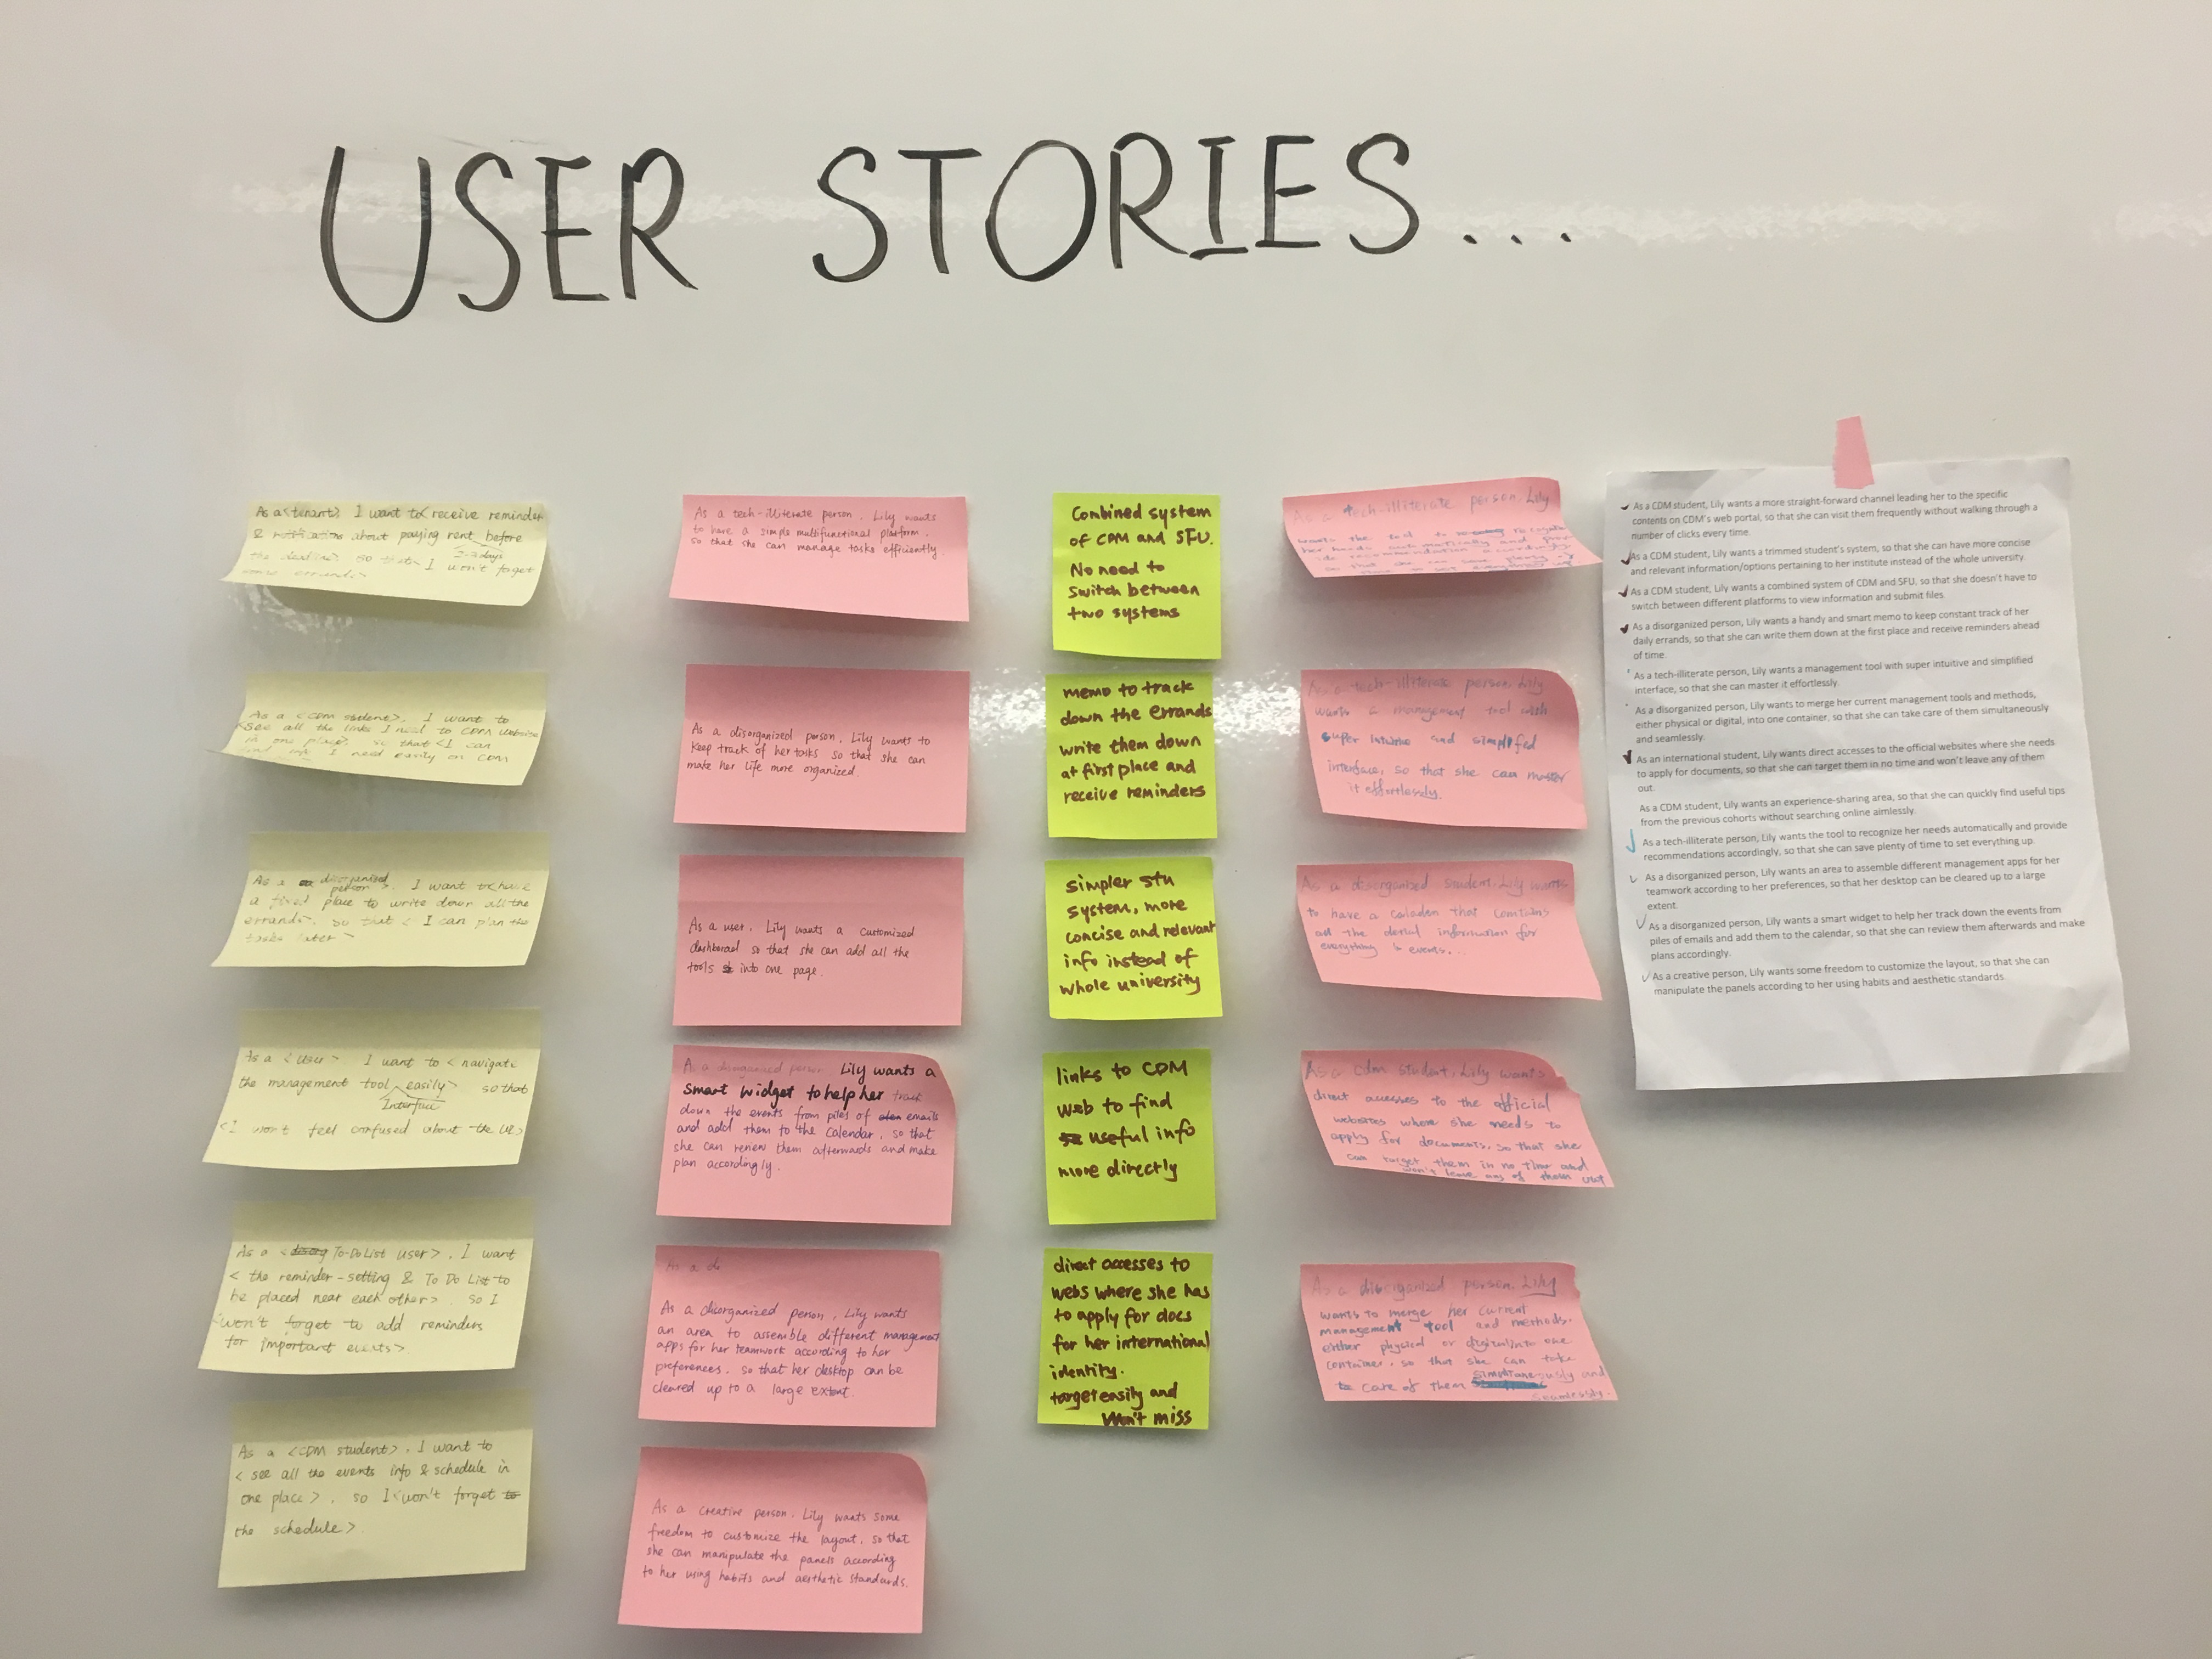 USER STORIES...
As a <tenant> I want to< receive reminder
& notifications about paying rent before
2-3 days
the deadline> so that< I won't forget
some errands>
As a <CDM student>, I want to
<see all the links I need to CDM website
in one place>, so that <I can
find info I need easily on CDM
As a disorganized
person >. I want to< have
a fixed place to write down all the
errands>, so that < I can plan the
tasks later >
As a <User> I want to < navigate
the management tool easily> so that
Interface
<I won't feel confused about the UI>
As a < To-Do List user>, I want
< the reminder-setting & To Do List to
be placed near each other>, so I
<won't forget to add reminders
for important events>.
As a <CDM student>, I want to
< see all the events info & schedule in
one place>, so I <won't forget to
the schedule>.
As a tech-illiterate person, Lily wants
to have a simple multifunctional platform,
so that she can manage tasks efficiently.
As a disorganized person, Lily wants to
keep track of her tasks so that she can
make her life more organized.
As a user, Lily wants a customized
dashboread so that she can add all the
tools into one page.
As a disorganized person, Lily wants a
smart widget to help her track
down the events from piles of emails
and add them to the calendar, so that
she can renew them afterwards and make
plan accordingly.
As a do
As a disorganized person, Lily wants
an area to assemble different management
apps for her teamwork according to her
preferences, so that her desktop can be
cleared up to a large extent
As a creative person, Lily wants some
freedom to customize the layout, so that
she can manipulate the panels according
to her using habits and aesthetic standards.
Combined system
of CDM and SFU.
No need to
switch between
two systems
memo to track
down the errands
write them down
at first place and
receive reminders
simpler stu
system, more
concise and relevant
info instead of
whole university
links to CDM
web to find
useful info
more directly
direct accesses to
webs where she has
to apply for docs
for her international
identity.
target easily and
won't miss
As a tech-illiterate person, Lily
wants the tool to recognize
her needs automatically and
recommendation accordingly
so that she can save plenty of
time to set everything up
As a tech-illiterate person, Lily
wants a management tool with
super intuitive and simplified
interface, so that she can master
it effortlessly.
As a disorganized student, Lily wants
to have a caladen that contains
all the detail information for
everything & events...
As a cdm student, Lily wants
direct accesses to the official
websites where she needs to
apply for documents, so that she
can target them in no time and
won't leave any of them out
As a disorganized person, Lily
wants to merge her current
management tool and methods,
either physical or digital into one
container, so that she can take
care of them simultaneously and
seamlessly.
As a CDM student, Lily wants a more straight-forward channel leading her to the specific
contents on CDM's web portal, so that she can visit them frequently without walking through a
number of clicks every time.
As a CDM student, Lily wants a trimmed student's system, so that she can have more concise
and relevant information/options pertaining to her institute instead of the whole university.
As a CDM student, Lily wants a combined system of CDM and SFU, so that she doesn't have to
switch between different platforms to view information and submit files.
As a disorganized person, Lily wants a handy and smart memo to keep constant track of her
daily errands, so that she can write them down at the first place and receive reminders ahead
of time.
As a tech-illiterate person, Lily wants a management tool with super intuitive and simplified
interface, so that she can master it effortlessly.
As a disorganized person, Lily wants to merge her current management tools and methods,
either physical or digital, into one container, so that she can take care of them simultaneously
and seamlessly.
As an international student, Lily wants direct accesses to the official websites where she needs
to apply for documents, so that she can target them in no time and won't leave any of them
out.
As a CDM student, Lily wants an experience-sharing area, so that she can quickly find useful tips
from the previous cohorts without searching online aimlessly.
As a tech-illiterate person, Lily wants the tool to recognize her needs automatically and provide
recommendations accordingly, so that she can save plenty of time to set everything up.
As a disorganized person, Lily wants an area to assemble different management apps for her
teamwork according to her preferences, so that her desktop can be cleared up to a large
extent.
As a disorganized person, Lily wants a smart widget to help her track down the events from
piles of emails and add them to the calendar, so that she can review them afterwards and make
plans accordingly.
As a creative person, Lily wants some freedom to customize the layout, so that she can
manipulate the panels according to her using habits and aesthetic standards.